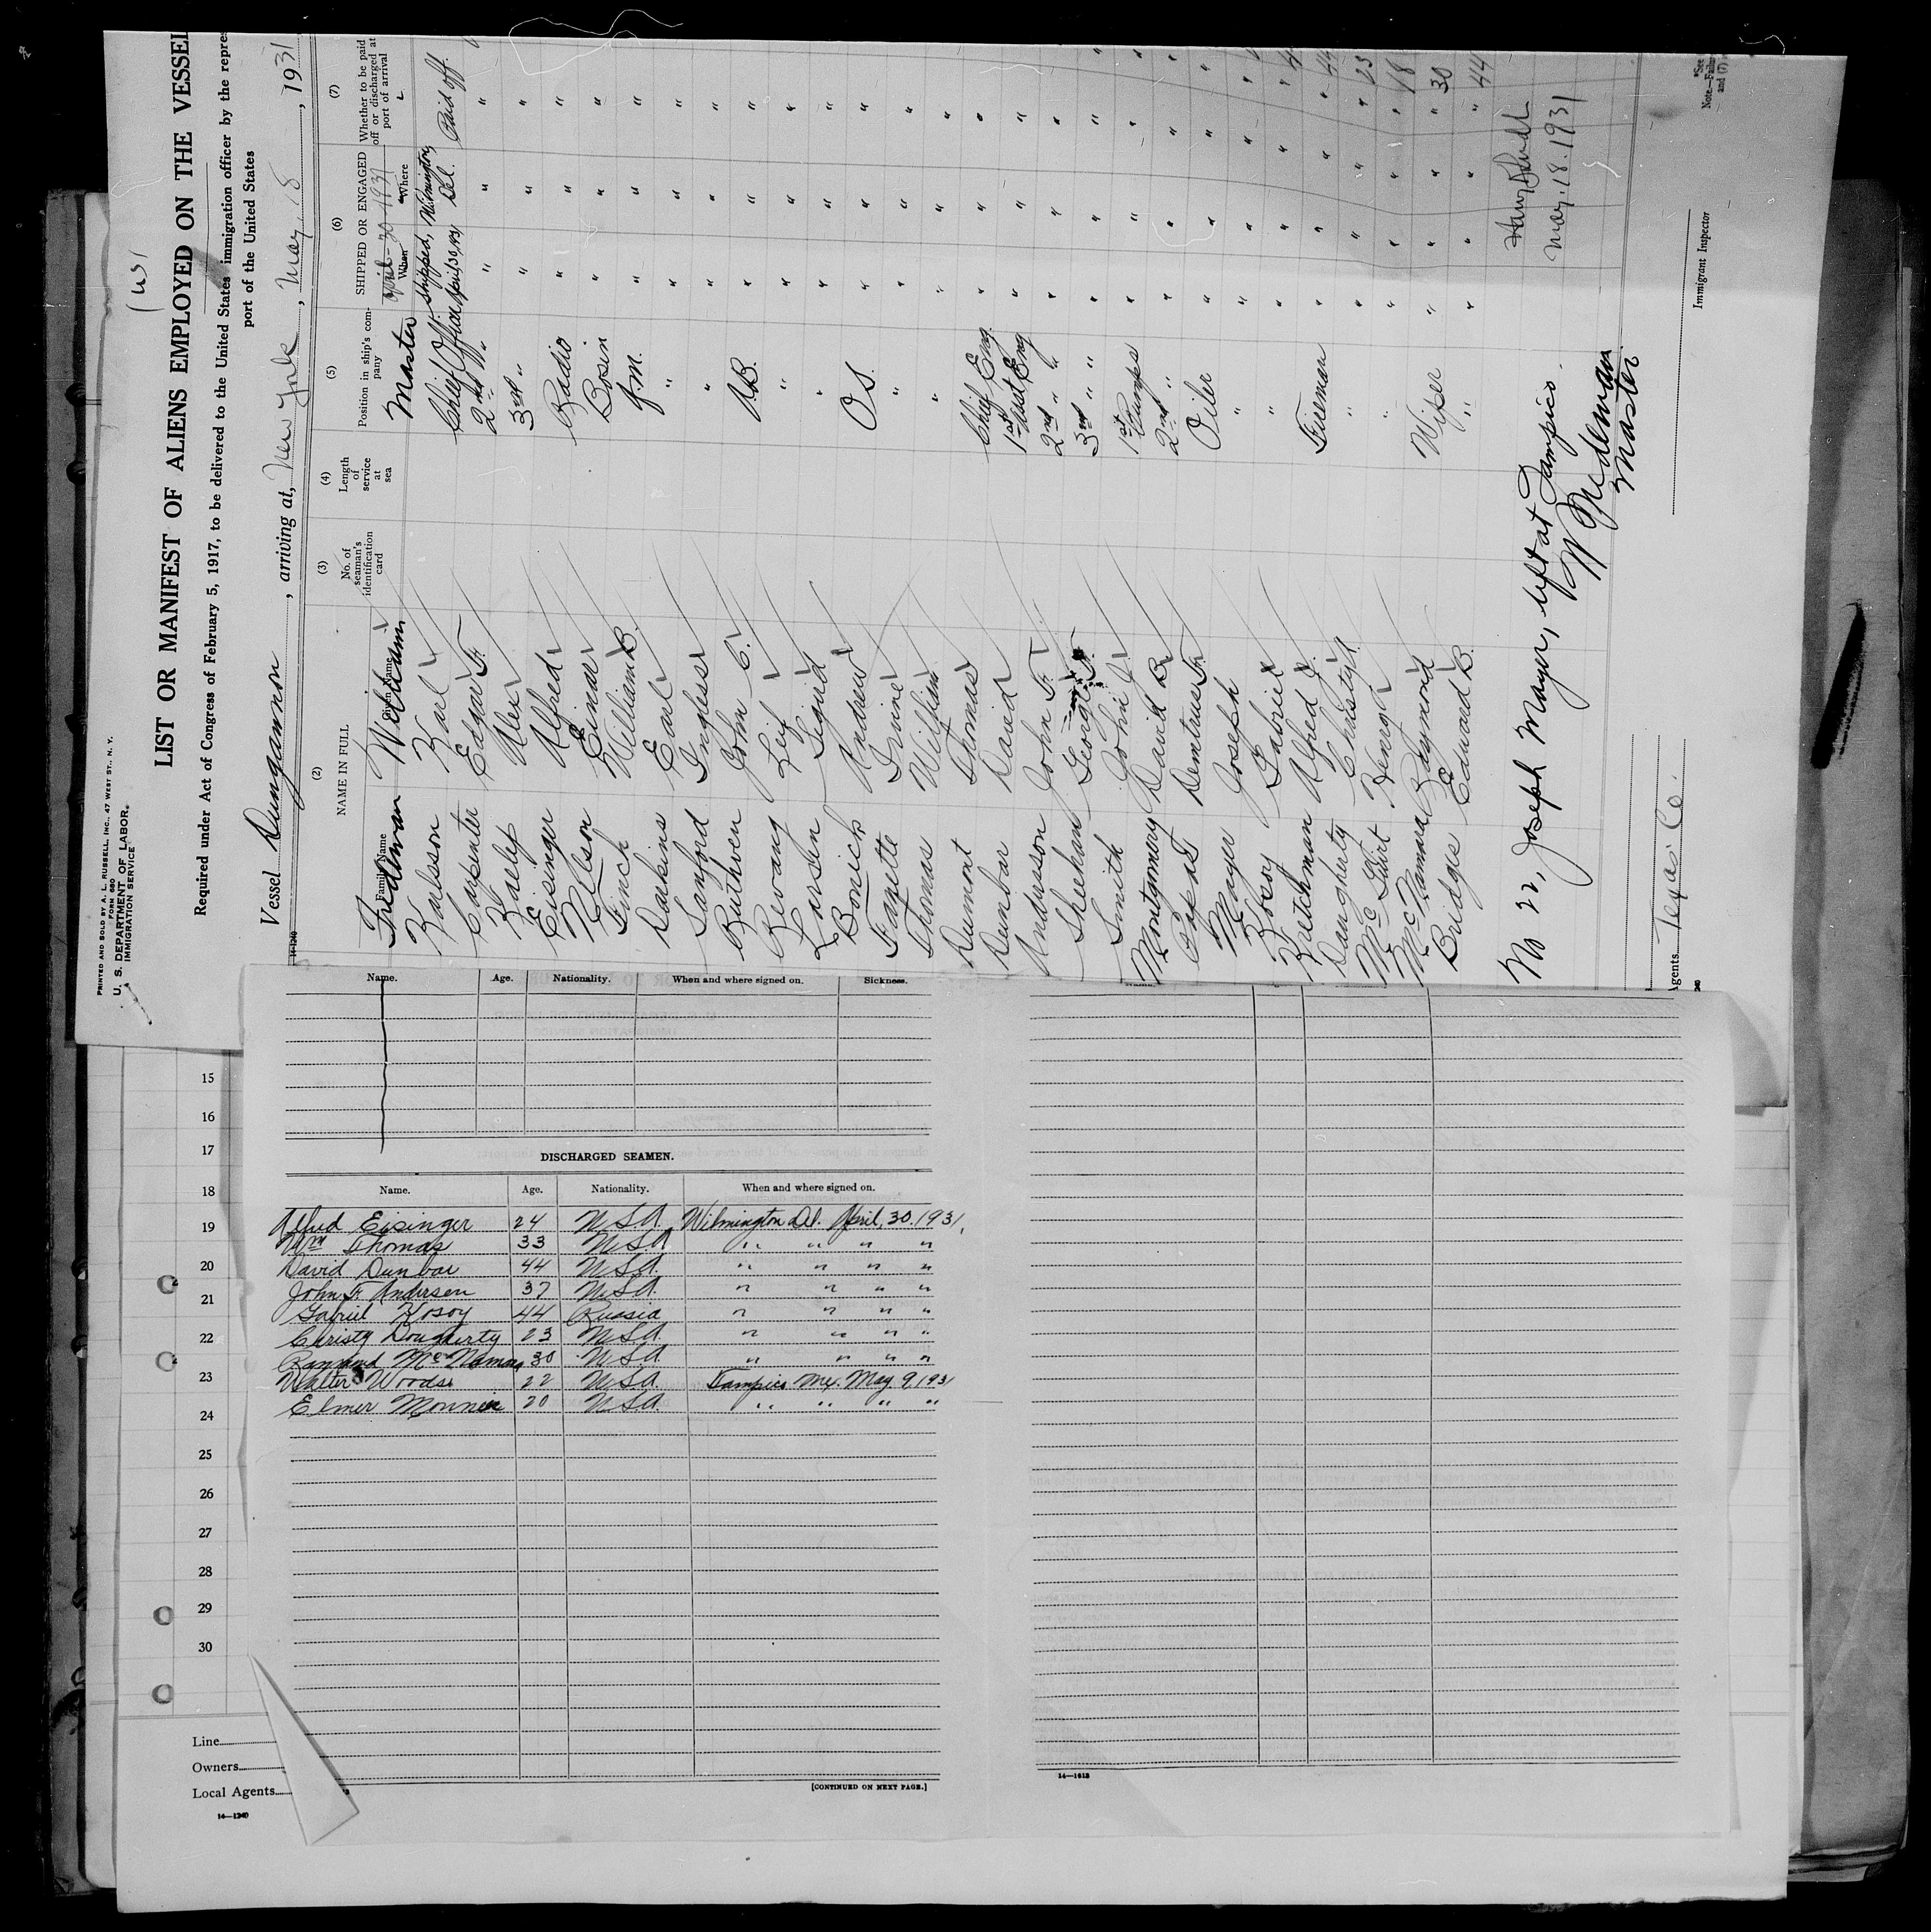 PRINTED AND SOLD BY A. L. RUSSELL, INC., 47 WEST ST., N. Y.
FORM 680
U. S. DEPARTMENT OF LABOR
IMMIGRATION SERVICE
LIST OR MANIFEST OF ALIENS EMPLOYED ON THE VESSEL
Required under Act of Congress of February 5, 1917, to be delivered to the United States immigration officer by the repres
port of the United States
Vessel Dungannon, arriving at, New York, May 18, 1931
14-1240
(2) (3) (4) (5) (6) (7)
NAME IN FULL
Family Name Given Name
No. of seaman's identification card
Length of service at sea
Position in ship's company
SHIPPED OR ENGAGED
When Where
Whether to be paid off or discharged at port of arrival
William Master April 30 1931
Karlsson Karl Chief Officer Shipped, April 30, 1931 Wilmington Del. Paid off
Carpenter Edgar F. 2nd " " " "
Raelep Alex 3rd " " " "
Eisinger Alfred Radio " " "
Nelson Einar Bosin " " "
Finch William B. " " "
Darkins Earl " " " "
Sanford Ingless " " " "
Ruthven John C. A.B. " " "
Leif " " " "
Larsen Sigrid " " " "
Bonich Andrew O.S. " " "
Fanette " " " "
Thomas William " " " "
Dumont Thomas Chief Eng. " " "
Dunbar David 1st Asst. Eng " " "
Anderson John F. 2nd " " " " "
Sheehan George 3rd " " " " "
Smith John J. 1st Pumps " " "
Montgomery David B. 2nd " " " "
F. Oiler " " "
Mayer Joseph " " " "
Kosoy Gabriel " " " " 44
Kretchman Alfred Fireman " " " 44
Daugherty Christy " " " " 23
Henry " " " " 18
McNamara Raymond Wiper " " " 30
Bridges Edward B. " " " " 44
No 22, Joseph Mayer, left at Tampico.
Master
May. 18. 1931
Immigrant Inspector
Note—Failure
and (7)
Agents Texas Co.
Name. Age. Nationality. When and where signed on. Sickness.
DISCHARGED SEAMEN.
Name. Age. Nationality. When and where signed on.
Alfred Eisinger 24 U.S.A. Wilmington Del. April, 30. 1931,
Wm Thomas 33 U.S.A. " " " "
David Dunbar 44 U.S.A. " " " "
John F. Andersen 37 U.S.A. " " " "
Gabriel Kosoy 44 Russia " " " "
Christy Dougherty 23 U.S.A. " " " "
Raymond McNamara 30 U.S.A. " " " "
Walter Woods 22 U.S.A. Tampico Mex. May 9, 1931
Elmer Monnier 20 U.S.A. " " " "
[CONTINUED ON NEXT PAGE.]
14—1613
15
16
17
18
19
20
21
22
23
24
25
26
27
28
29
30
Line
Owners
Local Agents
14—1240